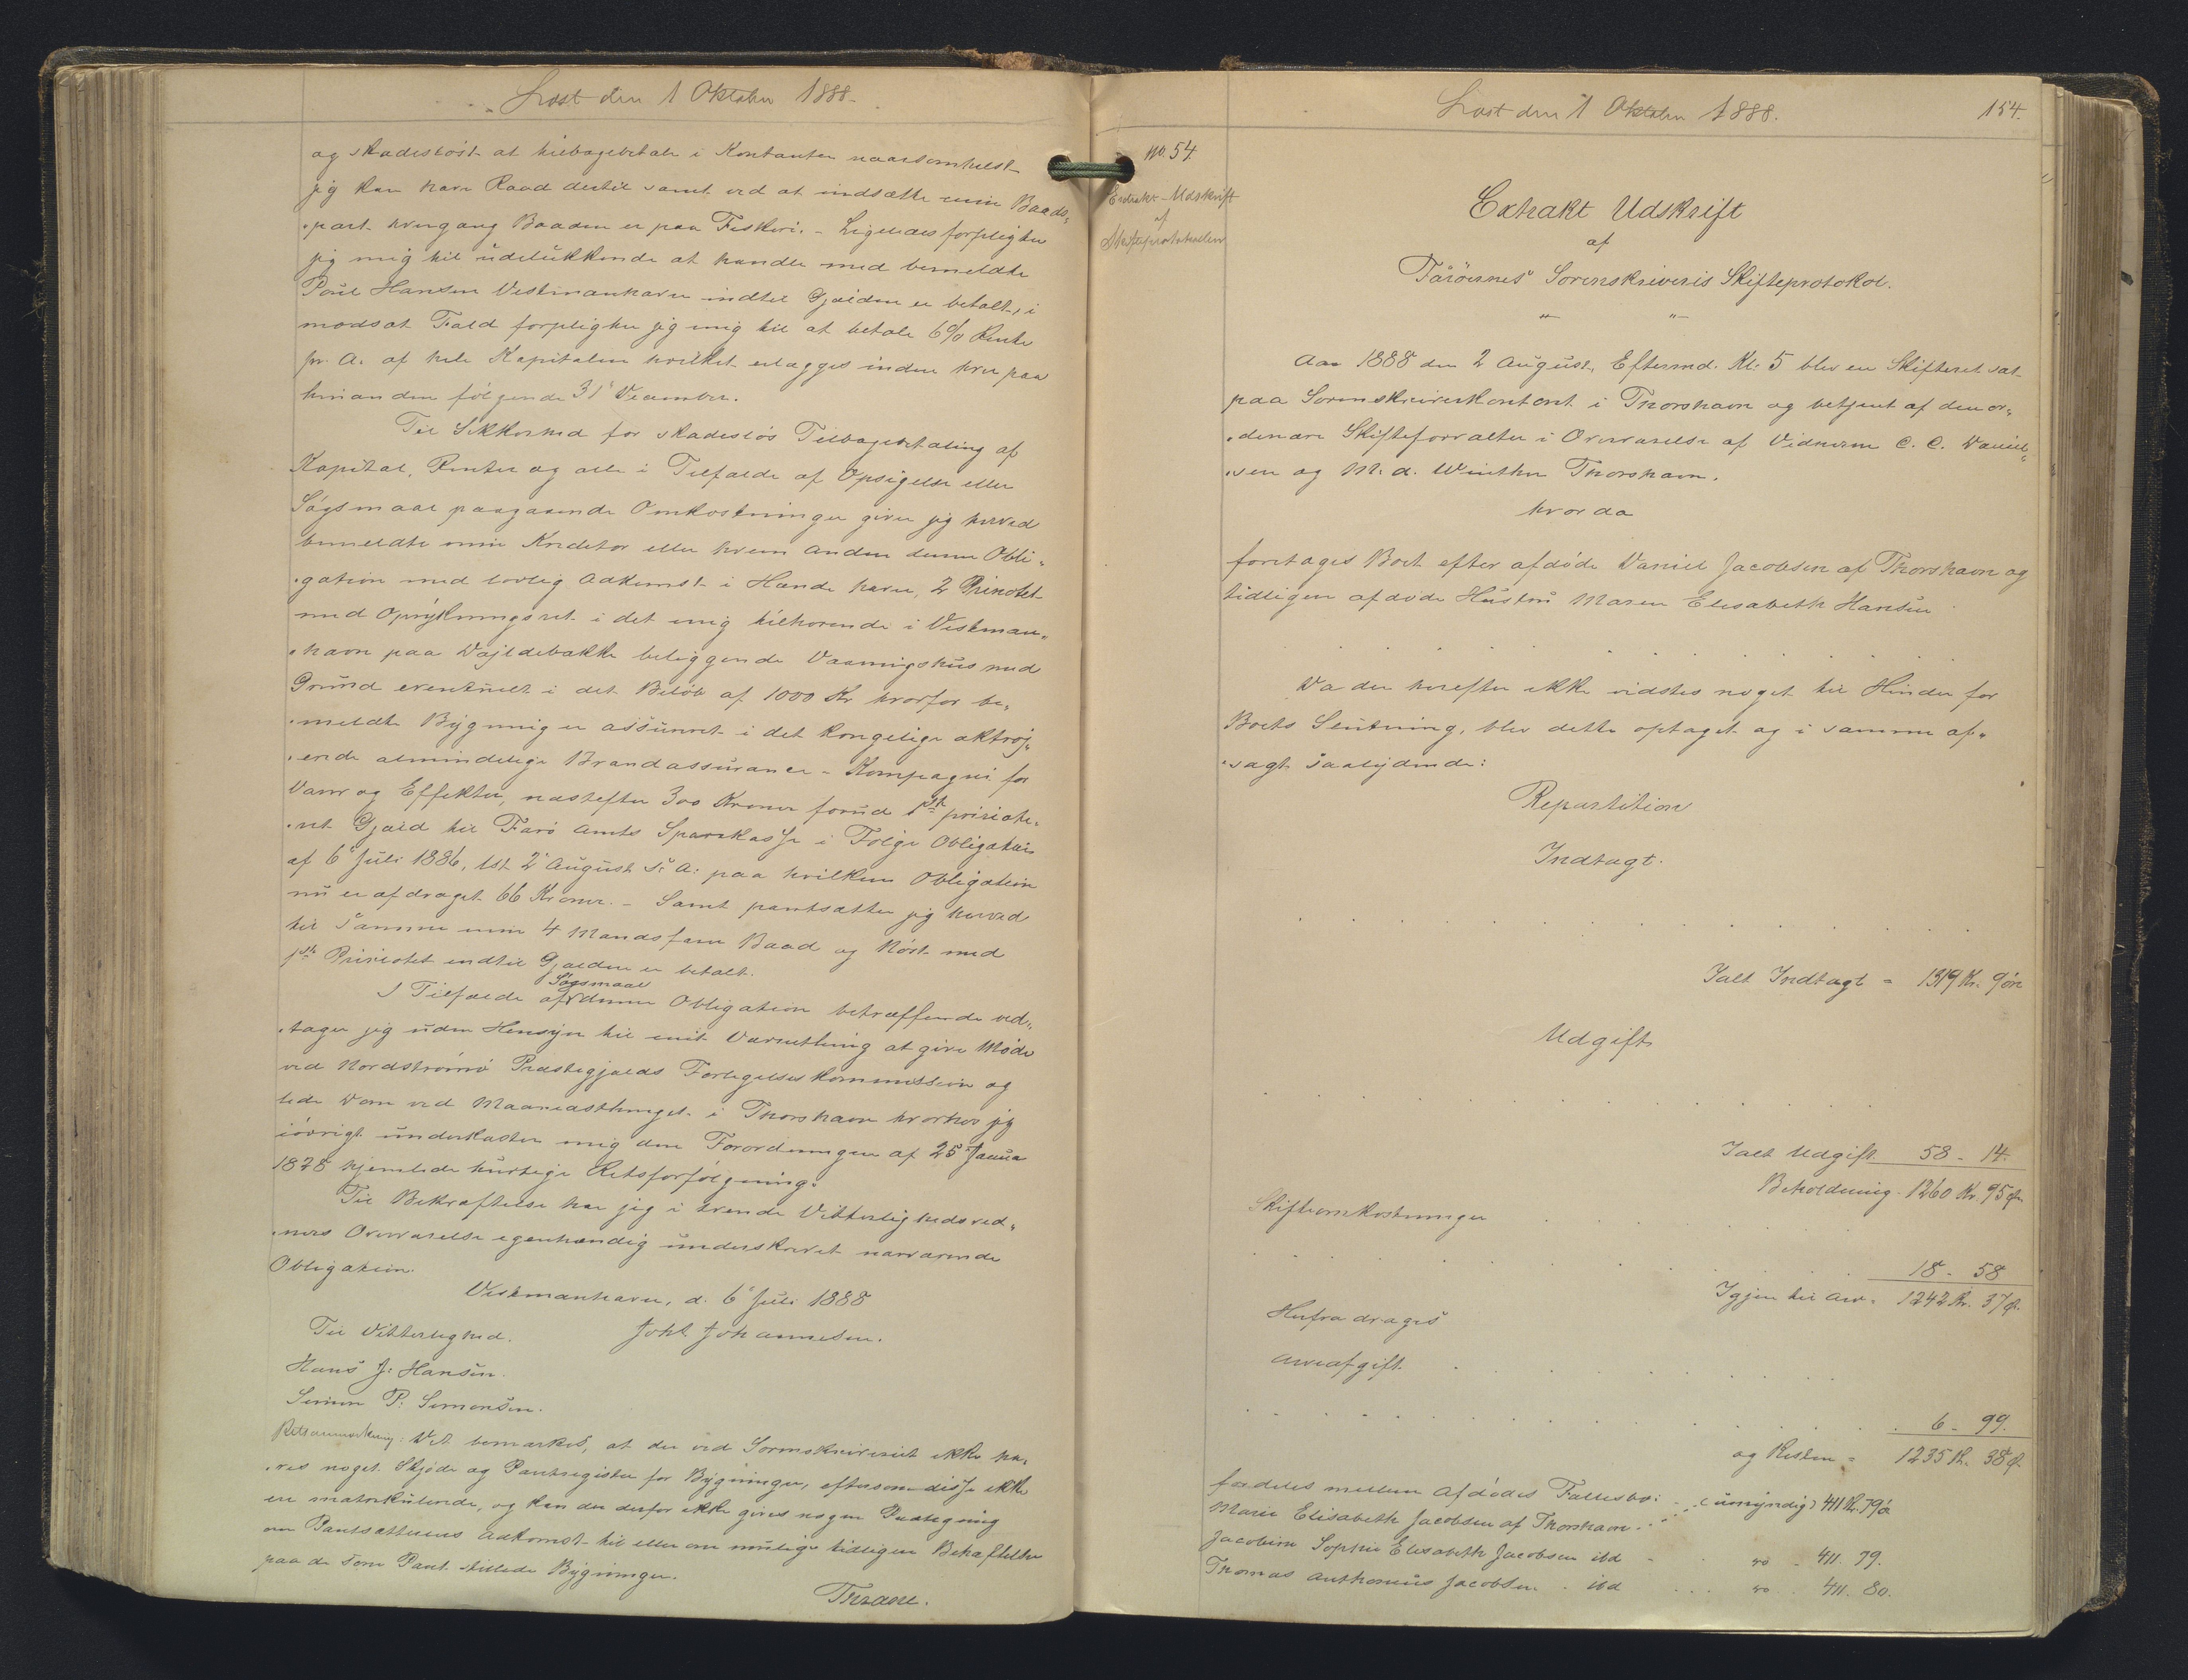 Læst den 1 Oktober 1888.
og skadesløst at tilbagebetale i Kontanter naarsomhelst
jeg kan have Raad dertil samt ved at indsætte min Baads-
part hvergang Baaden er paa Fiskeri. - Ligeledes forpligter
jeg mig til udelukkende at handle med bemeldte
Poul Hansen Vestmanhavn indtil Gjælden er betalt, i
modsat Fald forpligter jeg mig til at betale 6% Rente
pr. A. af hele Kapitalen hvilket erlægges inden hver paa
hinanden følgende 31' December.
Til Sikkerhed for skadesløs Tilbagebetaling af
Kapital, Renter og alle i Tilfælde af Opsigelse eller
Søgsmaal paagaaende Omkostninger giver jeg herved
bemeldte min Kreditor eller hvem anden denne Obli-
gation med lovlig Adkomst i Hænde haver, 2 Prioritet
med Oprykningsret i det mig tilhørende i Vestman-
havn paa Dajldebakke beliggende Vaaningshus med
Grund eventuelt i det Beløb af 1000 Kr hvorfor be-
meldte Bygning er assureret i det kongelige oktroj-
erede almindelige Brandassurance-Kompagni for
Varer og Effekter, næstefter 300 Kroner forud 1ste priorite-
ret Gjæld til Færø Amts Sparekasse i Følge Obligation
af 6' Juli 1886, lst 2' August s. A. paa hvilken Obligation
nu er afdraget 66 Kroner. - Samt pantsætter jeg herved
til samme min 4 Mandsfare Baad og Nøst med
1ste Prioritet indtil Gjælden er betalt.
I Tilfælde af Søgsmaal denne Obligation betræffende ved-
tager jeg uden Hensyn til mit Værneting at give Møde
ved Nordstrømø Præstegjælds Forligelseskommission og
lide Dom ved Maanedsthinget i Thorshavn hvorhos jeg
iøvrigt underkaster mig den Forordningen af 25 Janua
1828 hjemlede hurtige Retsforfølgning.
Til Bekræftelse har jeg i tvende Vitterlighedsvid-
ners Overværelse egenhændig underskrevet nærværende
Obligation.
Vestmanhavn, d. 6' Juli 1888
Til Vitterlighed. Johl Johannesen.
Hans J. Hansen.
Simon P. Simonsen.
Retsanmærkning: Det bemærkes, at der ved Sorenskriveriet ikke ha-
ves noget Skjøde og Pantregister for Bygninger, eftersom disse ikke
ere matrikulerede, og kan der derfor ikke gives nogen Paategning
om Pantsætterens Adkomst til eller om mulige tidligere Behæftelser
paa de som Pant stillede Bygninger.
Thrane.
Læst den 1 Oktober 1888.
154.
no. 54.
Extrakt-Udskrift
af
Skifteprotokollen
Extrakt Udskrift
af
Færöernes Sorenskriveris Skifteprotokol.
Aar 1888 den 2 August, Eftermd. Kl: 5 blev en Skifteret sat
paa Sorenskriverkontoret i Thorshavn og betjent af den or-
denære Skifteforvalter i Overværelse af Vidnerne C. C. Daniel-
sen og M. A. Winther Thorshavn.
hvor da
foretages Boet efter afdøde Daniel Jacobsen af Thorshavn og
tidligere afdøde Hustru Maren Elisabeth Hansen
Da der herefter ikke vidstes noget til Hinder for
Boets Slutning, blev dette optaget og i samme af-
sagt saalydende:
Repartition
Indtægt.
Ialt Indtægt = 1319 Kr. 9 øre
Udgift
Ialt Udgift 58 - 14.
Beholdning. 1260 Kr. 95 Ø.
Skifteomkostninger
18 - 58
Igjen til Arv = 1242 Kr. 37 Ø.
Herfra drages
Arveafgift.
6 - 99.
og Resten = 1235 K. 38 Ø.
fordeles mellem Afdødes Fællesbø:
Marie Elisabeth Jacobsen af Thorshavn (umyndig) 411 Kr. 79 ø
Jacobine Sophie Elisabeth Jacobsen ibd do 411. 79.
Thomas Anthonius Jacobsen ibd do 411. 80.